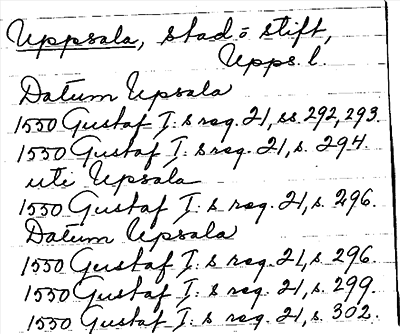 Uppsala, stad o stift,
Upps. l.
Datum Upsala
1550 Gustaf I: s reg. 21, ss. 292, 293.
1550 Gustaf I: s reg. 21, s. 294.
uti Upsala
1550 Gustaf I: s reg. 21, s. 296.
Datum Upsala
1550 Gustaf I: s reg. 21, s. 296.
1550 Gustaf I: s reg. 21, s. 299.
1550 Gustaf I: s reg. 21, s. 302.